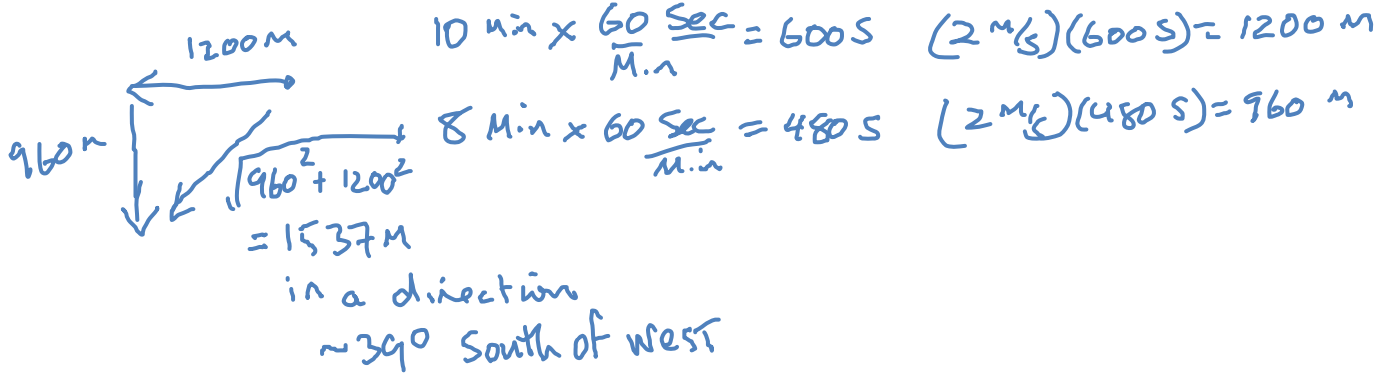 1200 M
10 Min x 60 Sec/Min = 600 S (2 M/S)(600 S) = 1200 M
960 M
8 Min x 60 Sec/Min = 480 S (2 M/S)(480 S) = 960 M
√960² + 1200²
= 1537 M
in a direction
~39° South of West